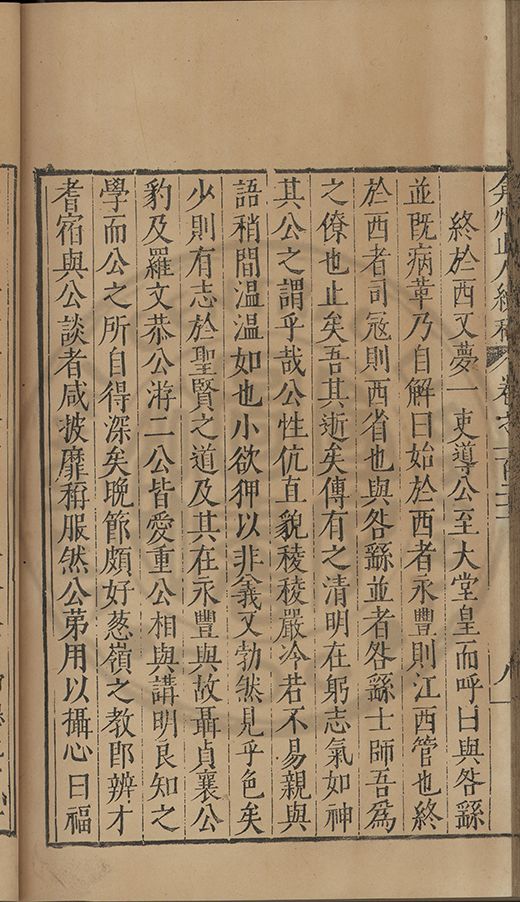 弇州山人續稿
終於西又夢一吏導公至大堂皇而呼曰與咎繇
並旣病革乃自解曰始於西者永豐則江西管也終
於西者司冦則西省也與咎繇並者咎繇士師吾爲
之僚也止矣吾其逝矣傳有之清明在躬志氣如神
其公之謂乎哉公性伉直貌稜稜嚴冷若不易親與
語稍間溫溫如也小欲狎以非義又勃然見乎色矣
少則有志於聖賢之道及其在永豐與故聶貞襄公
豹及羅文恭公游二公皆愛重公相與講明良知之
學而公之所自得深矣晩節頗好葱嶺之教卽辨才
耆宿與公談者咸披靡稱服然公苐用以攝心曰福